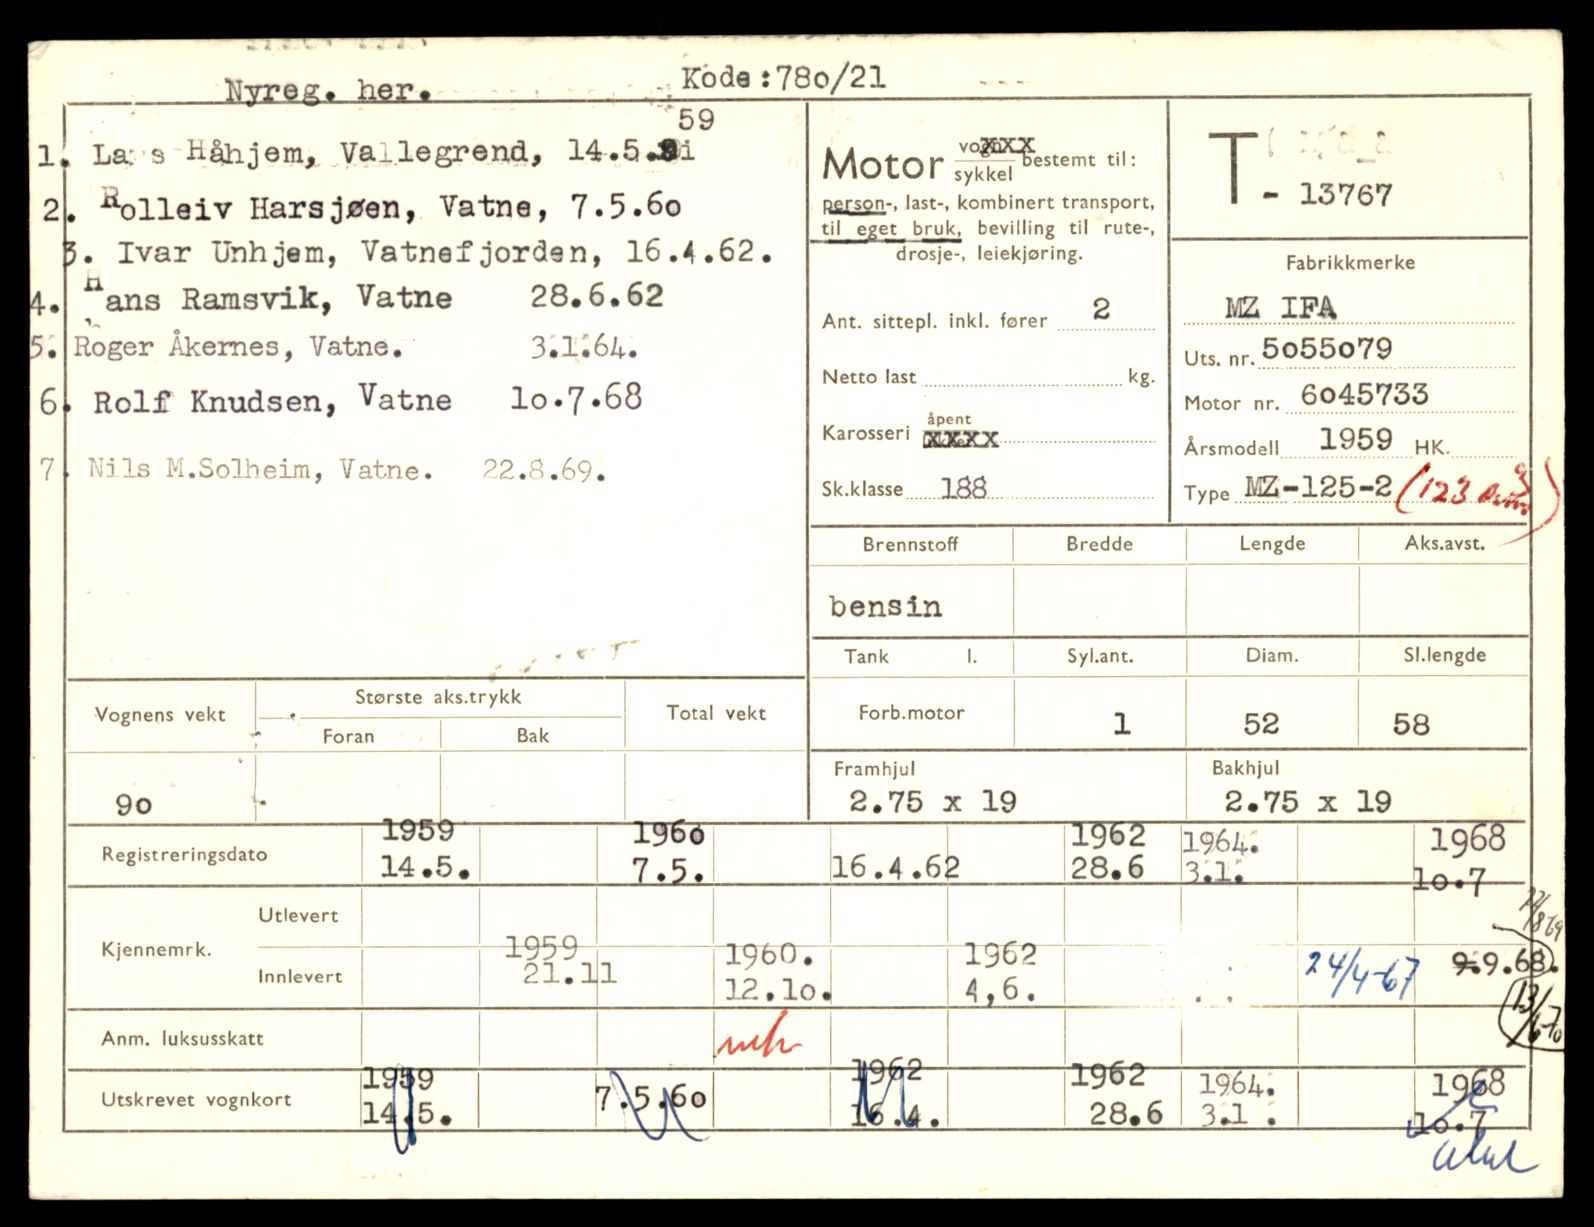 Nyreg. her.
Kode:780/21
59
1. Lars Håhjem, Vallegrend, 14.5.
2. Rolleiv Harsjøen, Vatne, 7.5.60
3. Ivar Unhjem, Vatnefjorden, 16.4.62.
4. Hans Ramsvik, Vatne 28.6.62
5. Roger Åkernes, Vatne. 3.1.64.
6. Rolf Knudsen, Vatne 10.7.68
7. Nils M.Solheim, Vatne. 22.8.69.
Motor vogn xxx sykkel bestemt til:
person-, last-, kombinert transport,
til eget bruk, bevilling til rute-,
drosje-, leiekjøring.
Ant. sittepl. inkl. fører 2
Netto last kg.
Karosseri åpent xxxx
Sk.klasse 188
T - 13767
Fabrikkmerke
MZ IFA
Uts. nr. 5055079
Motor nr. 6045733
Årsmodell 1959 HK.
Type MZ-125-2 (123
Brennstoff Bredde Lengde Aks.avst.
bensin
Tank l. Syl.ant. Diam. Sl.lengde
Forb.motor 1 52 58
Framhjul Bakhjul
2.75 x 19 2.75 x 19
Vognens vekt Største aks.trykk Total vekt
Foran Bak
90
1959 1960 1962 1964. 1968
Registreringsdato 14.5. 7.5. 16.4.62 28.6 3.1. 10.7
Utlevert
22/8 69
Kjennemrk.
1959 1960. 1962 24/4-67 9.9.68.
Innlevert 21.11 12.10. 4,6. 13/6-70
Anm. luksusskatt
1959 1962 1962 1964. 1968
Utskrevet vognkort 14.5. 7.5.60 16.4. 28.6 3.1. 10.7